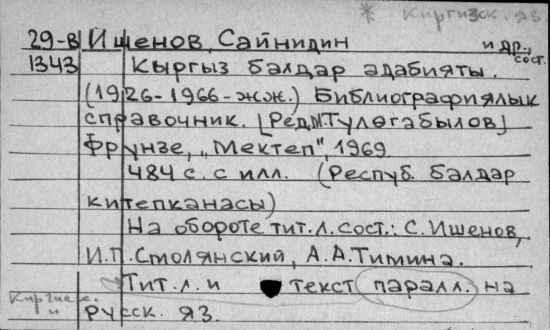 * Киргизск. яз.
29-в Ишенов, Сайнидин и др., сост.
1343 Кыргыз балдар адабияты.
(1926-1966-жж.) Библиографиялык
справочник. [Ред. М. Тулөгабылов]
Фрунзе, „Мектеп", 1969.
484 с. с илл. (Респуб. балдар
китепканасы)
На обороте тит. л. сост.: С. Ишенов,
И. П. Смолянский, А. А. Тимина.
Тит. л. и текст паралл. на
Киргизск. и русск. яз.